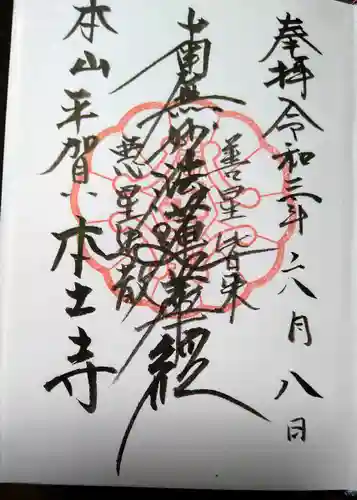 奉拝令和三年六月八日
善星皆来
南無妙法蓮華経
悪星退散
本山平賀
本土寺